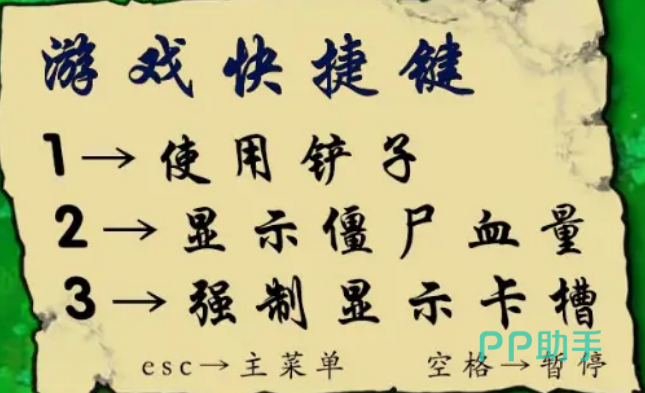 游戏快捷键
1→使用铲子
2→显示僵尸血量
3→强制显示卡槽
PP助手
esc→主菜单 空格→暂停